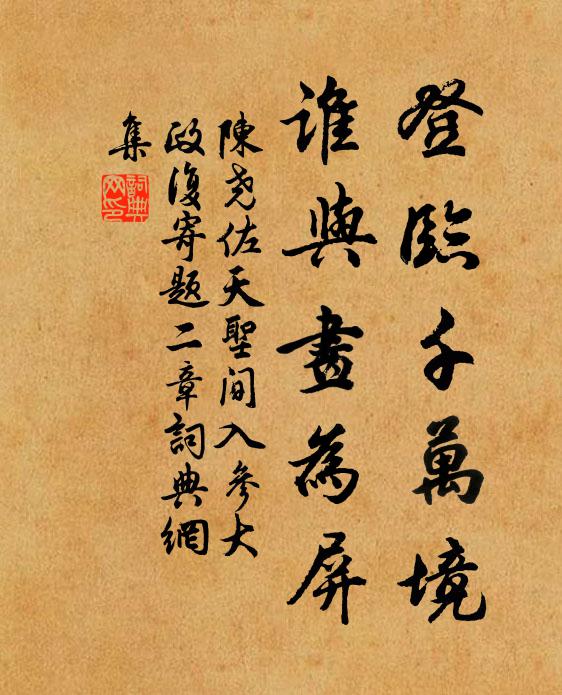 登臨千萬境
誰與畫為屏
陳堯佐天聖間入參大
政復寄題二章詞典網
集
詞典
网印